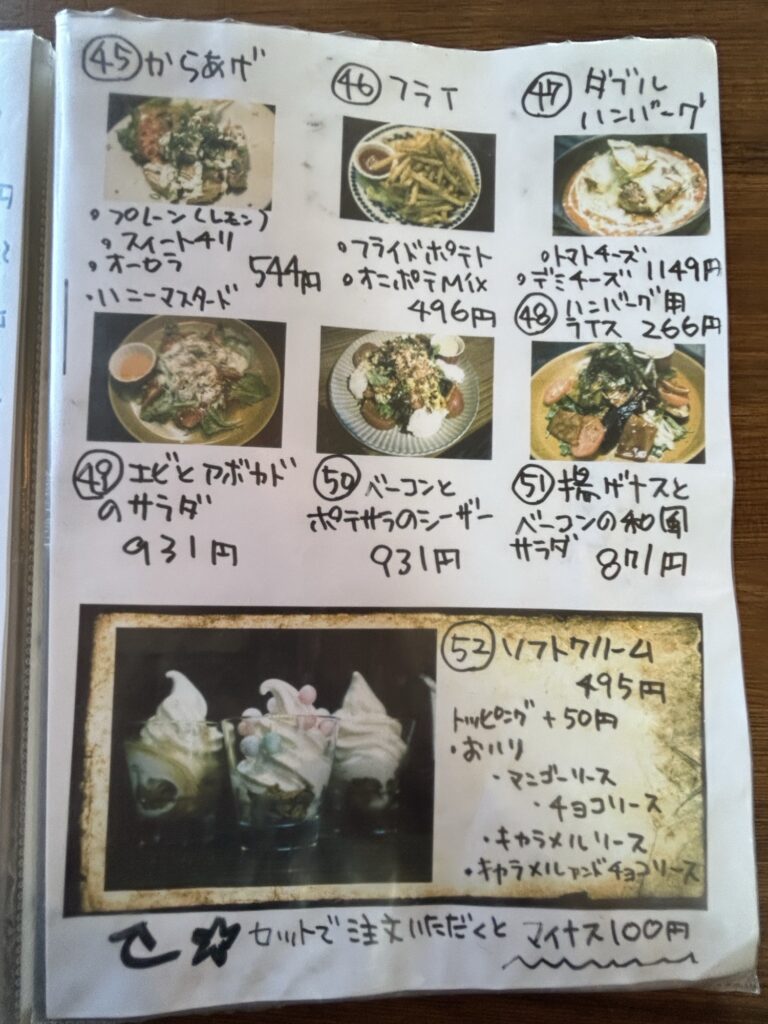 ㊺からあげ
・プレーン(レモン)
・スイートチリ
・オーロラ
544円
・ハニーマスタード
㊻フライ
・フライドポテト
・オニポテMix
496円
㊼ダブル
ハンバーグ
・トマトチーズ
・デミチーズ 1149円
㊽ハンバーグ用
ライス 266円
㊾エビとアボカド
のサラダ
931円
㊿ベーコンと
ポテサラのシーザー
931円
51 揚げナスと
ベーコンの和風
サラダ 871円
52 ソフトクリーム
495円
トッピング+50円
・おいり
・マンゴーソース
・チョコソース
・キャラメルソース
・キャラメルアンドチョコソース
☆セットで注文いただくと マイナス100円